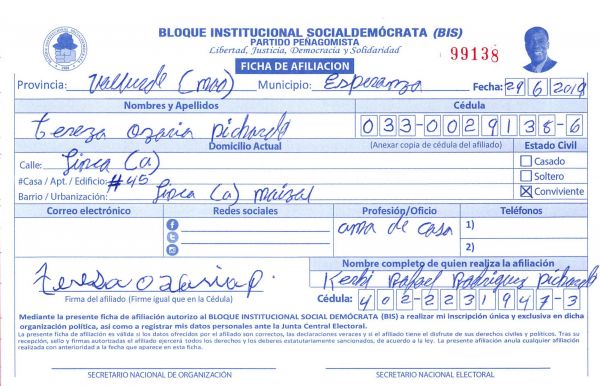 BLOQUE INSTITUCIONAL SOCIALDEMÓCRATA (BIS)
PARTIDO PEÑAGOMISTA
Libertad, Justicia, Democracia y Solidaridad
99138
FICHA DE AFILIACION
Provincia: Valverde (mao) Municipio: Esperanza Fecha: 29 6 2019
Nombres y Apellidos Cédula
tereza ozaria pichardo 033-0029138-6
Domicilio Actual (Anexar copia de cédula del afiliado) Estado Civil
Calle: Linea (a) Casado
#Casa / Apt. / Edificio: #45 Soltero
Barrio / Urbanización: Linea (a) maizal Conviviente
Correo electrónico Redes sociales Profesión/Oficio Teléfonos
ama de casa 1)
2)
Nombre completo de quien realiza la afiliación
teresa ozaria p. Kerbi Rafael Rodriguez Pichardo
Firma del afiliado (Firme igual que en la Cédula) Cédula: 402-2231947-3
Mediante la presente ficha de afiliación autorizo al BLOQUE INSTITUCIONAL SOCIAL DEMÓCRATA (BIS) a realizar mi inscripción única y exclusiva en dicha
organización política, así como a registrar mis datos personales ante la Junta Central Electoral.
La presente ficha de afiliación es válida si los datos ofrecidos por el afiliado son correctos, las declaraciones veraces y si el afiliado tiene el disfrute de sus derechos civiles y políticos. Tras su
recepción, sello y firmas autorizadas el afiliado ejercerá todos los derechos y los deberes estatutariamente sancionados, de acuerdo a la ley. La presente afiliación anula cualquier afiliación
realizada con anterioridad a la fecha que aparece en esta ficha.
SECRETARIO NACIONAL DE ORGANIZACIÓN SECRETARIO NACIONAL ELECTORAL